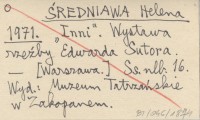 ŚREDNIAWA Helena
1971. "Inni". Wystawa
rzeźby Edwarda Sutora.
— [Warszawa.] Ss. nlb 16.
Wyd: Muzeum Tatrzańskie
w Zakopanem.